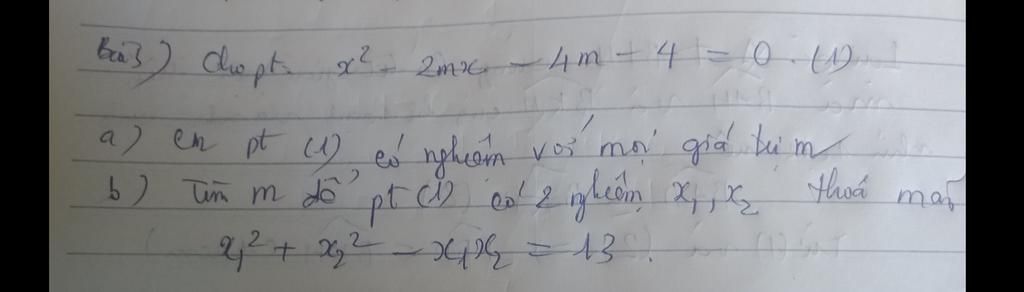 Bài 3) Cho pt x² - 2mx - 4m - 4 = 0. (1)
a) cm pt (1) có nghiệm với mọi giá trị m
b) Tìm m để pt (1) có 2 nghiệm x₁, x₂ thoả mãn
x₁² + x₂² - x₁x₂ = 13.